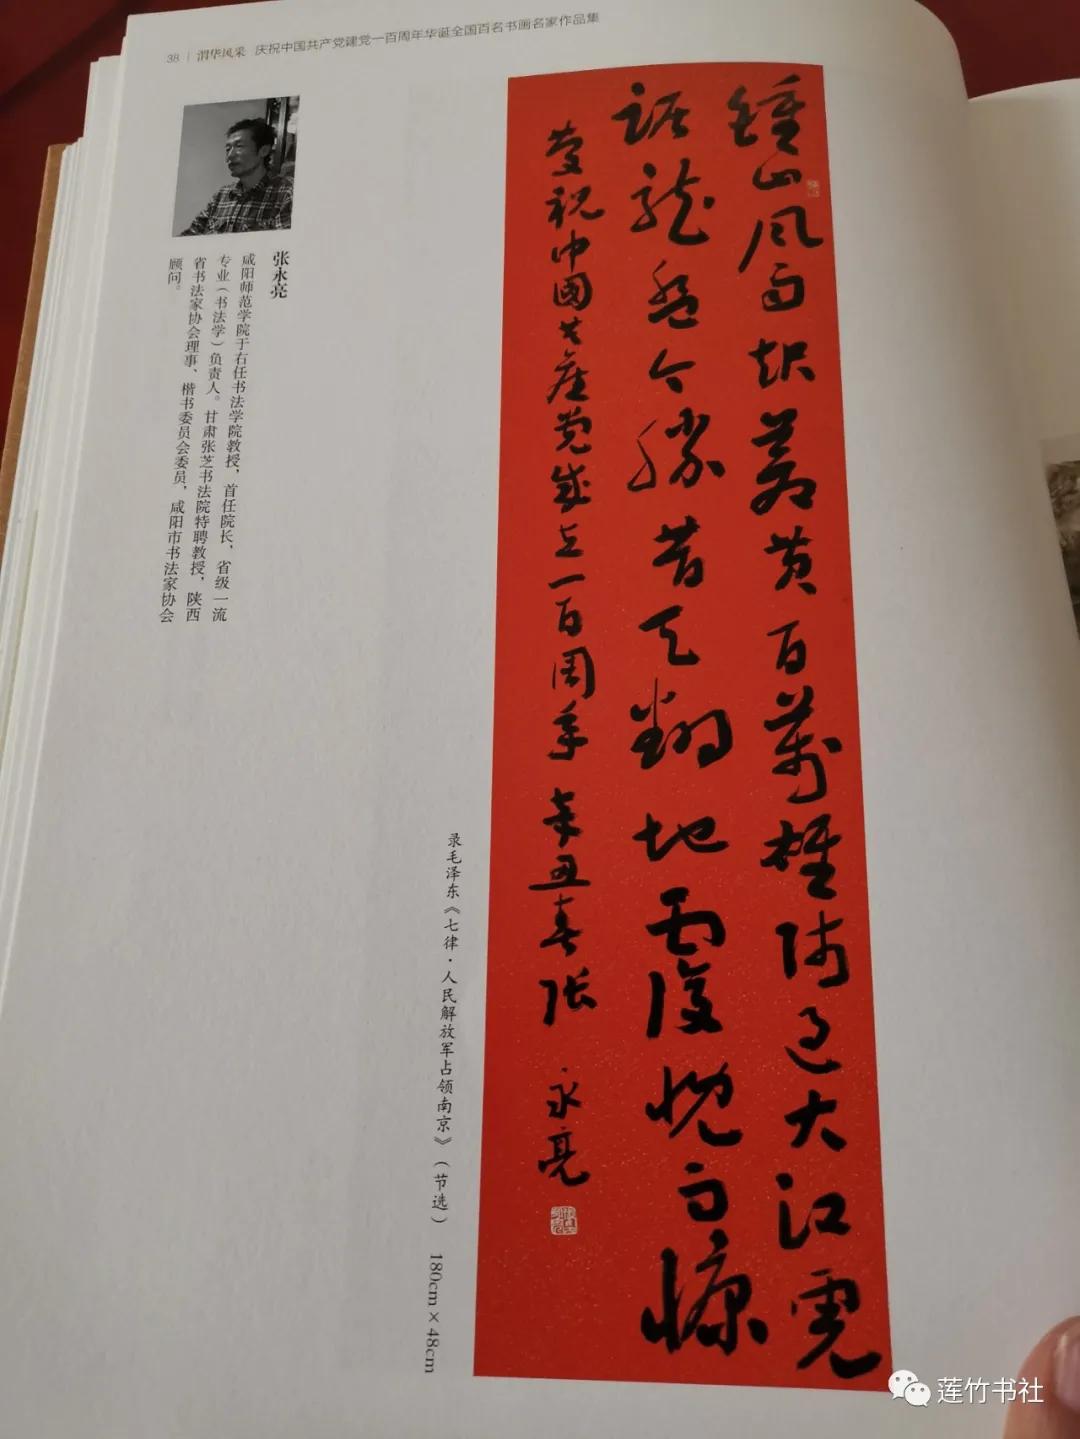 38 | 渭华风采 庆祝中国共产党建党一百周年华诞全国百名书画名家作品集
张永亮
咸阳师范学院于右任书法学院教授，首任院长，省级一流
专业（书法学）负责人。甘肃张芝书法院特聘教授，陕西
省书法家协会理事、楷书委员会委员，咸阳市书法家协会
顾问。
鍾山風雨起蒼黄百萬雄師過大江虎
踞龍盤今勝昔天翻地覆慨而慷
慶祝中國共産党成立一百周年 辛丑春張永亮
录毛泽东《七律·人民解放军占领南京》（节选） 180cm×48cm
莲竹书社